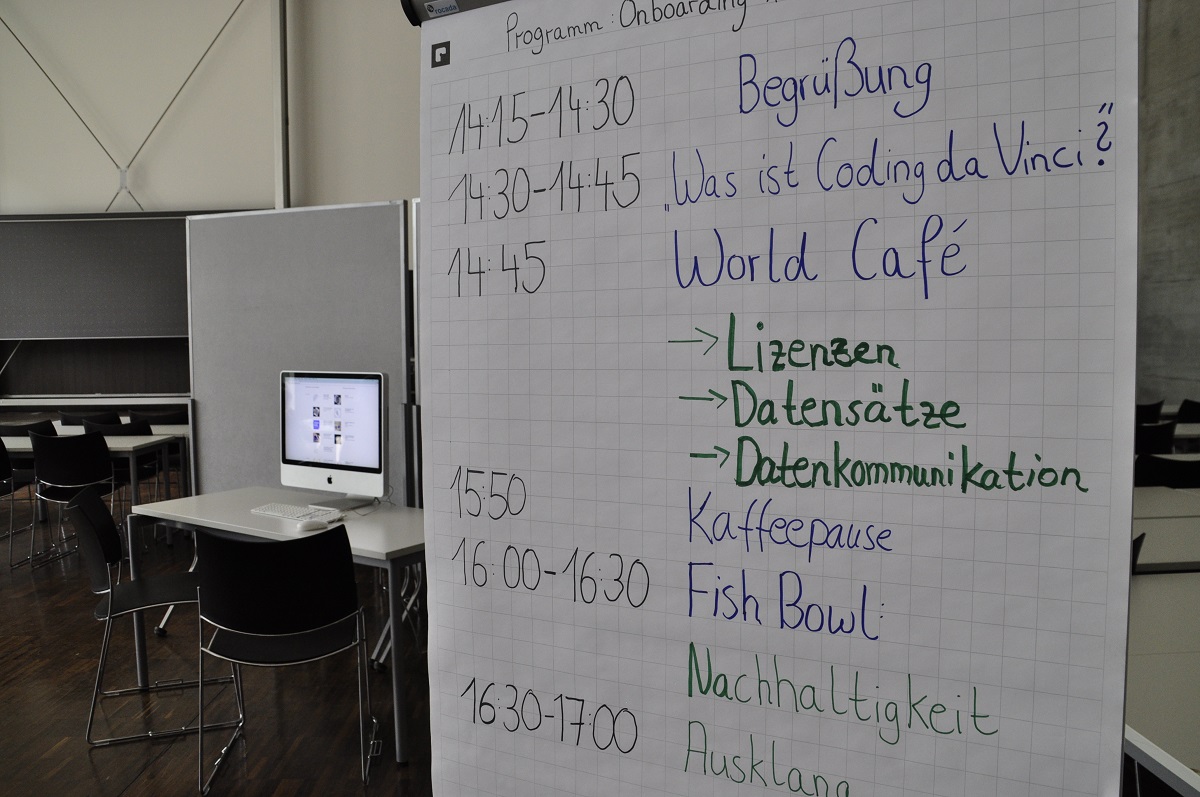 rocada
Programm: Onboarding
14:15-14:30 Begrüßung
14:30-14:45 „Was ist Coding da Vinci?"
14:45 World Café
→ Lizenzen
→ Datensätze
→ Datenkommunikation
15:50 Kaffeepause
16:00-16:30 Fish Bowl:
Nachhaltigkeit
16:30-17:00 Ausklang